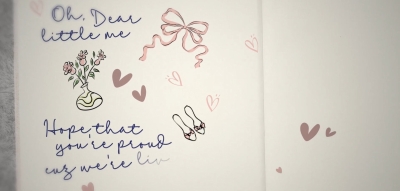 Oh, Dear
little me
Hope that
you're proud
cuz we're liv